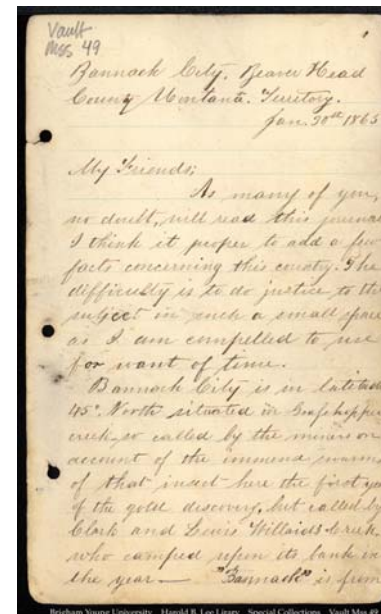 Vault
Mss 49
1
Bannack City, Beaver Head
County Montana. Territory.
Jan. 30th 1865
My Friends;
As many of you,
no doubt, will read this journal
I think it proper to add a few
facts concerning this country. The
difficulty is to do justice to the
subject in such a small space
as I am compelled to use
for want of time.
Bannack City is in latitud
45° North situated in Grasshopper
creek, so called by the miners on
account of the immens swarms
of that insect here the first year
of the gold discovery, but called by
Clark and Lewis Willards Creek,
who camped upon its bank in
the year — "Bannack" is from
Brigham Young University Harold B. Lee Library Special Collections Vault Mss 49